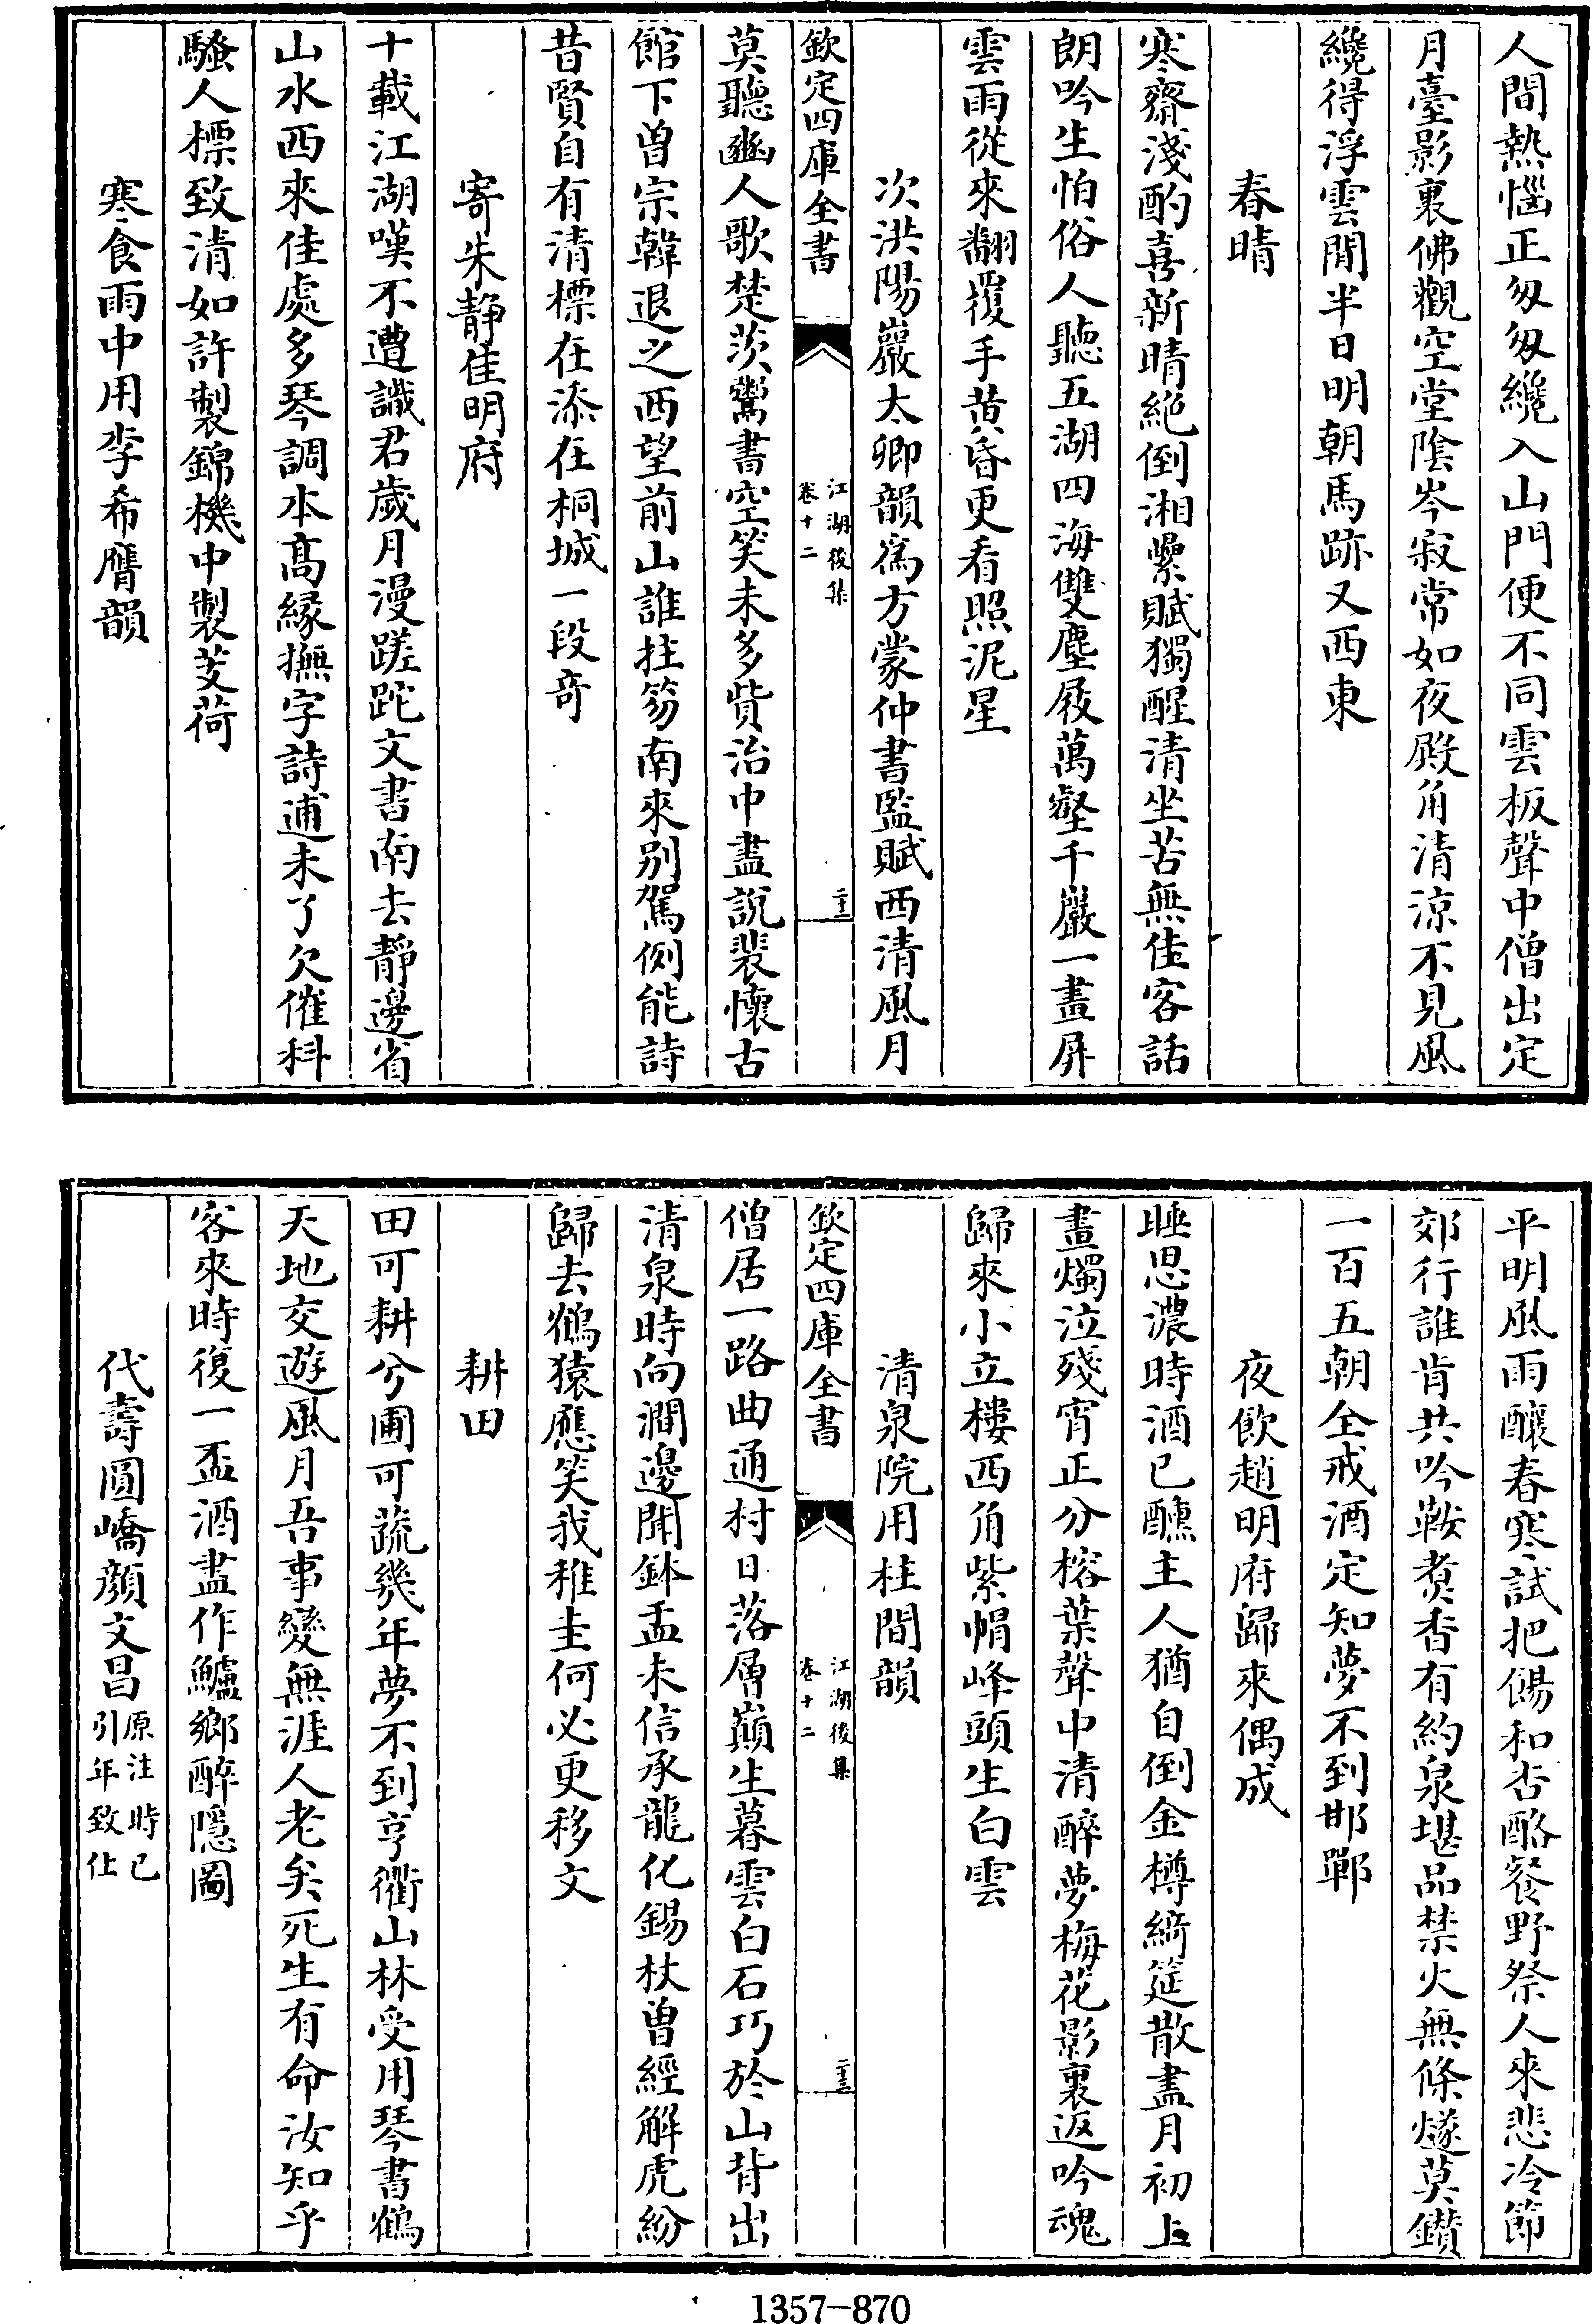 人間熱惱正匆匆纔入山門便不同雲板聲中僧出定
月臺影裏佛觀空堂陰岑寂常如夜殿角清涼不見風
纔得浮雲閒半日明朝馬跡又西東
春晴
寒齋淺酌喜新晴絶倒湘纍賦獨醒清坐苦無佳客話
朗吟生怕俗人聽五湖四海雙塵屐萬壑千巖一畫屏
雲雨從來翻覆手黄昏更看照泥星
次洪陽巖太卿韻爲方蒙仲書監賦西清風月
欽定四庫全書
江湖後集
卷十二
二十二
莫聽豳人歌楚茨鸞書空笑未多貲治中盡說裴懷古
館下曾宗韓退之西望前山誰拄笏南來别駕例能詩
昔賢自有清標在添在桐城一段竒
寄朱靜佳明府
十載江湖嘆不遭識君歲月漫蹉跎文書南去靜邊省
山水西來佳處多琴調本髙緣撫字詩逋未了欠催科
騷人標致清如許製錦機中製芰荷
寒食雨中用李希膺韻
平明風雨釀春寒試把餳和杏酪餐野祭人來悲冷節
郊行誰肯共吟鞍煑香有約泉堪品禁火無條燧莫鑽
一百五朝全戒酒定知夢不到邯鄲
夜飲趙明府歸來偶成
睡思濃時酒已醺主人猶自倒金樽綺筵散盡月初上
畫燭泣殘宵正分榕葉聲中清醉夢梅花影裏返吟魂
歸來小立樓西角紫帽峰頭生白雲
清泉院用柱間韻
欽定四庫全書
江湖後集
卷十二
二十三
僧居一路曲通村日落層巔生暮雲白石巧於山背出
清泉時向澗邊聞鉢盂未信承龍化錫杖曾經解虎紛
歸去鶴猿應笑我稚圭何必更移文
耕田
田可耕兮圃可蔬幾年夢不到亨衢山林受用琴書鶴
天地交遊風月吾事變無涯人老矣死生有命汝知乎
客來時復一盃酒盡作鱸鄉醉隱圖
代壽圓嶠顔文昌原注時已引年致仕
1357-870